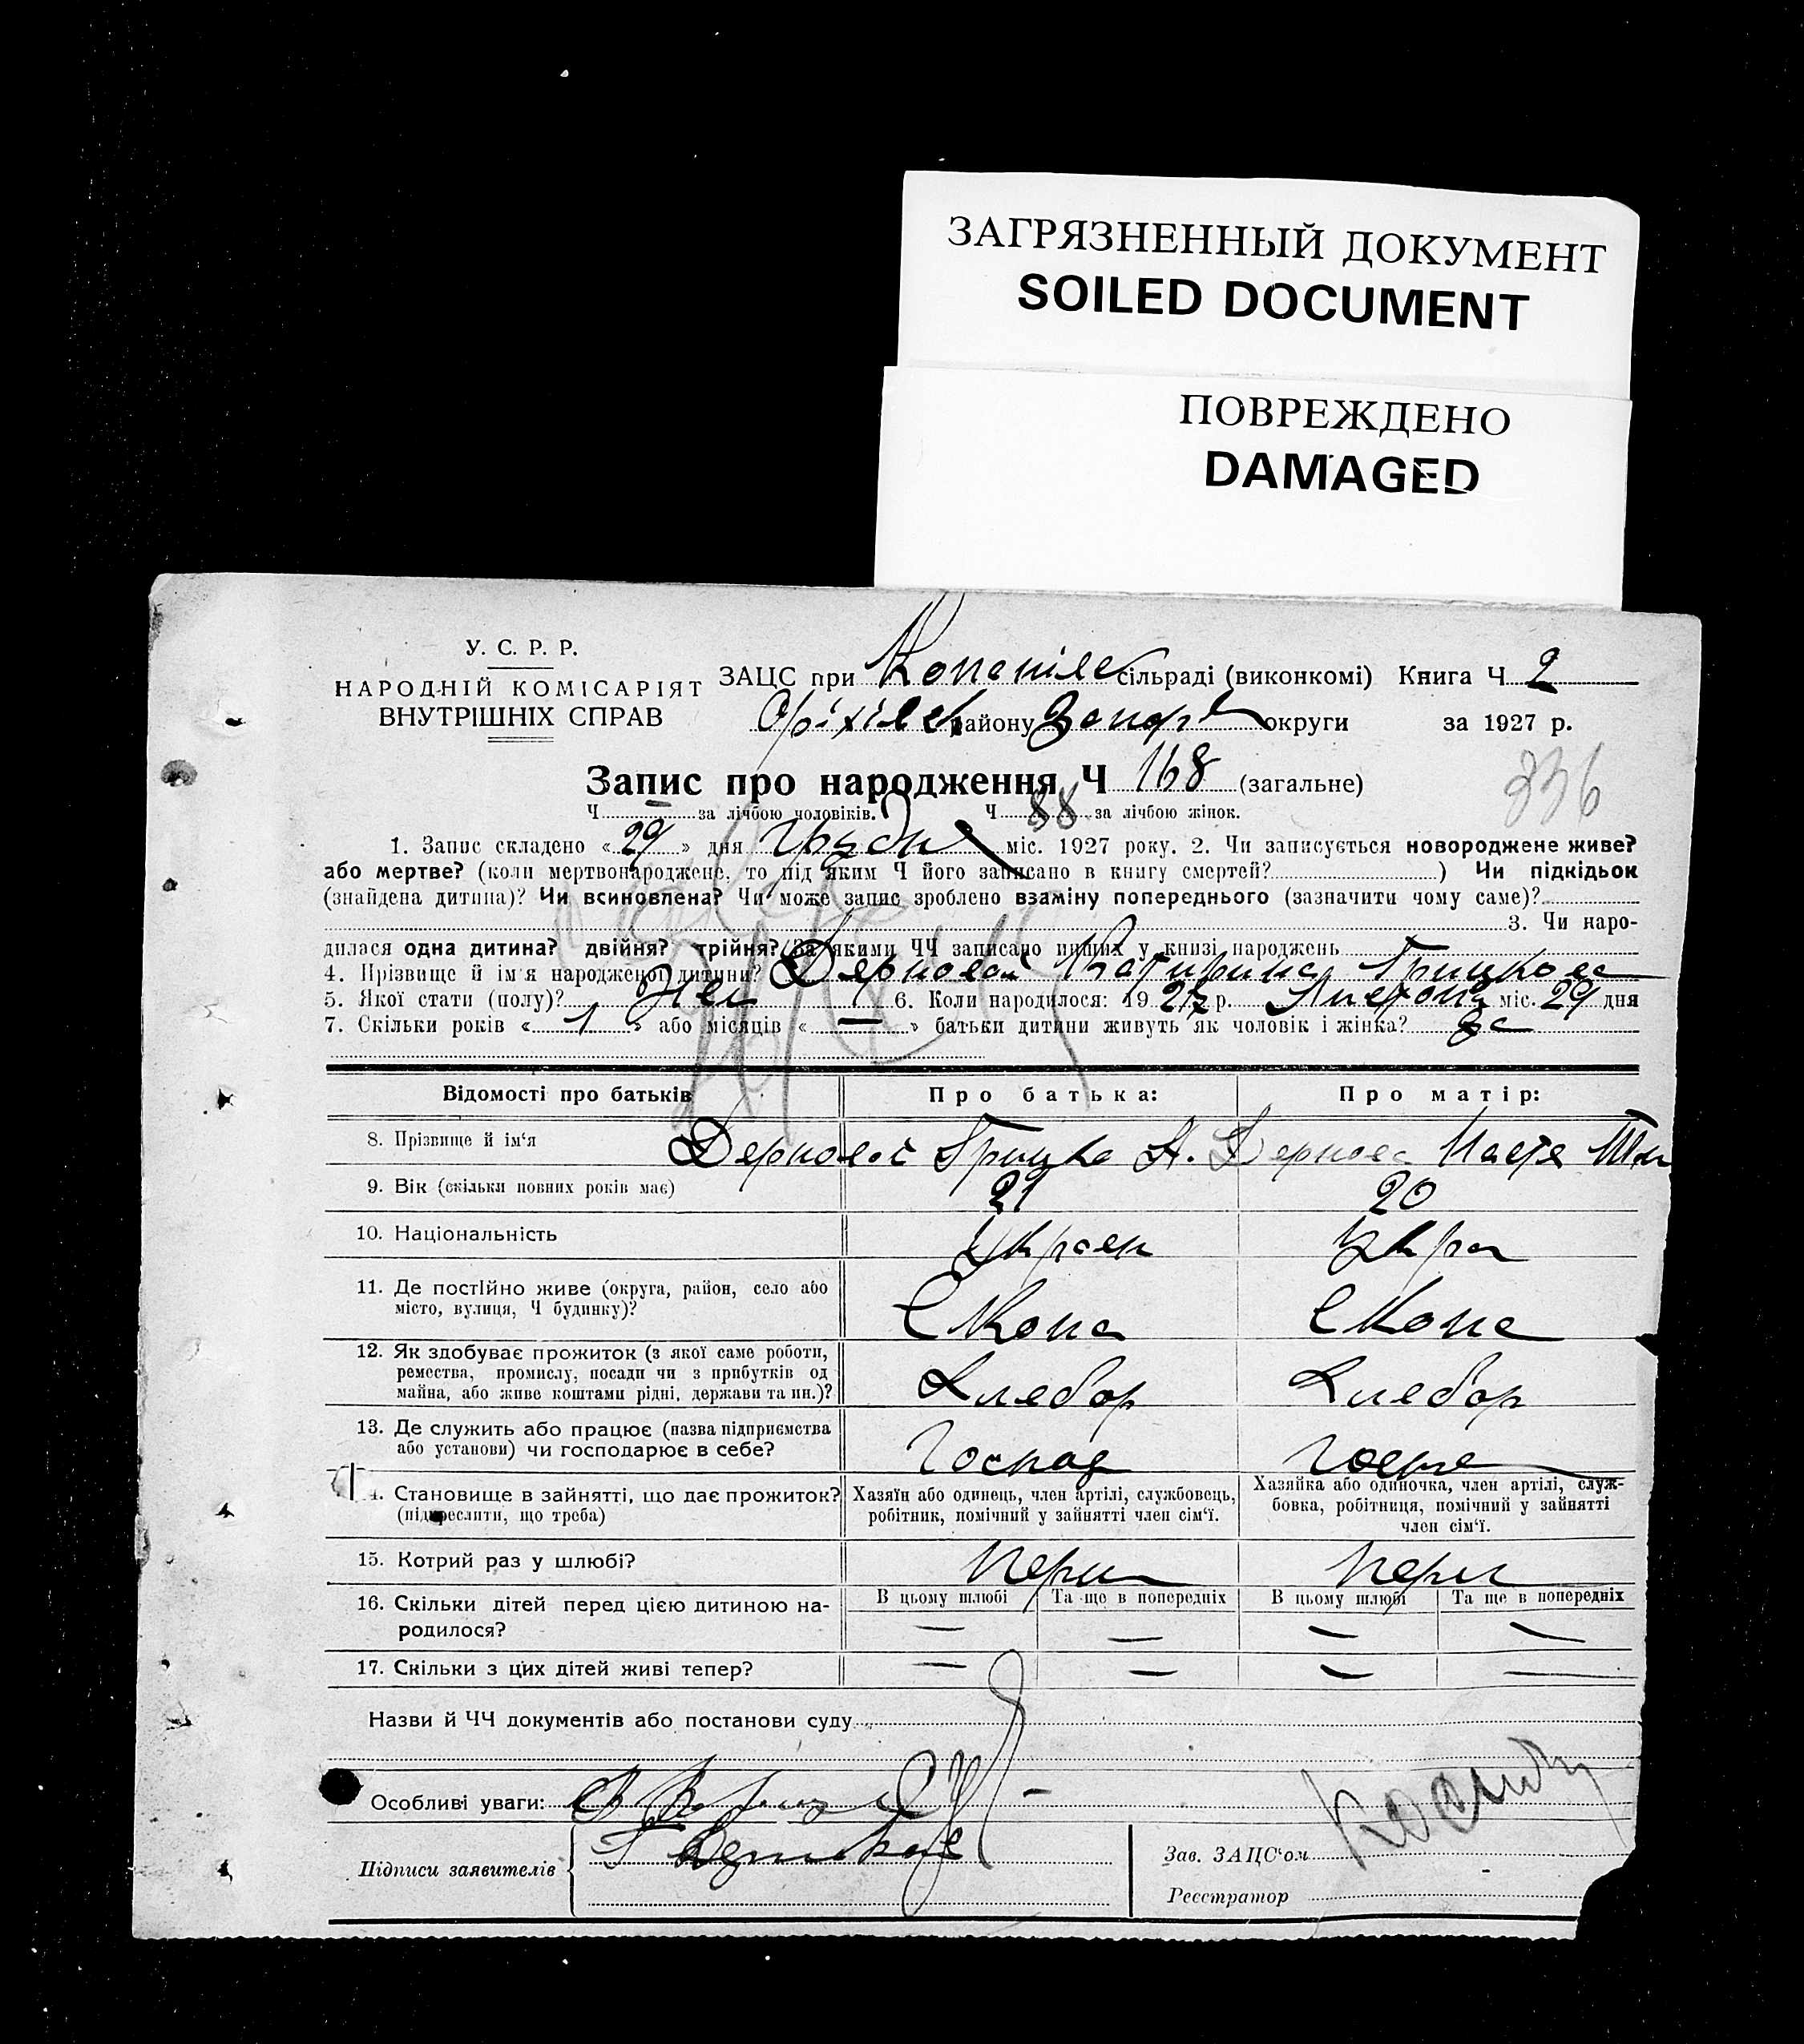 ЗАГРЯЗНЕННЫЙ ДОКУМЕНТ
SOILED DOCUMENT
ПОВРЕЖДЕНО
DAMAGED
У. С. Р. Р.
НАРОДНІЙ КОМІСАРІЯТ
ВНУТРІШНІХ СПРАВ
ЗАЦС при сільраді (виконкомі) Книга Ч 2
Оріхівск району Запор округи за 1927 р.
Запис про народження Ч 168 (загальне)
336
Ч — за лічбою чоловіків. Ч 88 за лічбою жінок.
1. Запис складено « 29 » дня Грудня міс. 1927 року. 2. Чи записується новороджене живе?
або мертве? (коли мертвонароджене, то під яким Ч його записано в книгу смертей? ) Чи підкідьок
(знайдена дитина)? Чи всиновлена? Чи може запис зроблено взаміну попереднього (зазначити чому саме)?
3. Чи наро-
дилася одна дитина? двійня? трійня? За якими ЧЧ записано инших у книзі народжень
4. Прізвище й ім'я народженої дитини?
5. Якої статі (полу)? Жен 6. Коли народилося: 1927 р. міс. 29 дня
7. Скільки років « 1 » або місяців « — » батьки дитини живуть як чоловік і жінка? да
Відомості про батьків Про батька: Про матір:
8. Прізвище й ім'я Грицко Настя
9. Вік (скільки повних років має) 21 20
10. Національність Украен Укра
11. Де постійно живе (округа, район, село або
місто, вулиця, Ч будинку)?
С Копа С Копа
12. Як здобуває прожиток (з якої саме роботи,
ремества, промислу, посади чи з прибутків од
майна, або живе коштами рідні, держави та ин.)?
Хлебор Хлебор
13. Де служить або працює (назва підприємства
або установи) чи господарює в себе?
Господ
14. Становище в зайнятті, що дає прожиток?
(підкреслити, що треба)
Хазяїн або одинець, член артілі, службовець,
робітник, помічний у зайнятті член сім'ї.
Хазяйка або одиночка, член артілі, служ-
бовка, робітниця, помічний у зайнятті
член сім'ї.
15. Котрий раз у шлюбі? Перш Перш
16. Скільки дітей перед цією дитиною на-
родилося?
В цьому шлюбі Та ще в попередніх В цьому шлюбі Та ще в попередніх
— — — —
17. Скільки з цих дітей живі тепер? — — — —
Назви й ЧЧ документів або постанови суду
Особливі уваги:
Підписи заявителів
Зав. ЗАЦС'ом
Реєстратор